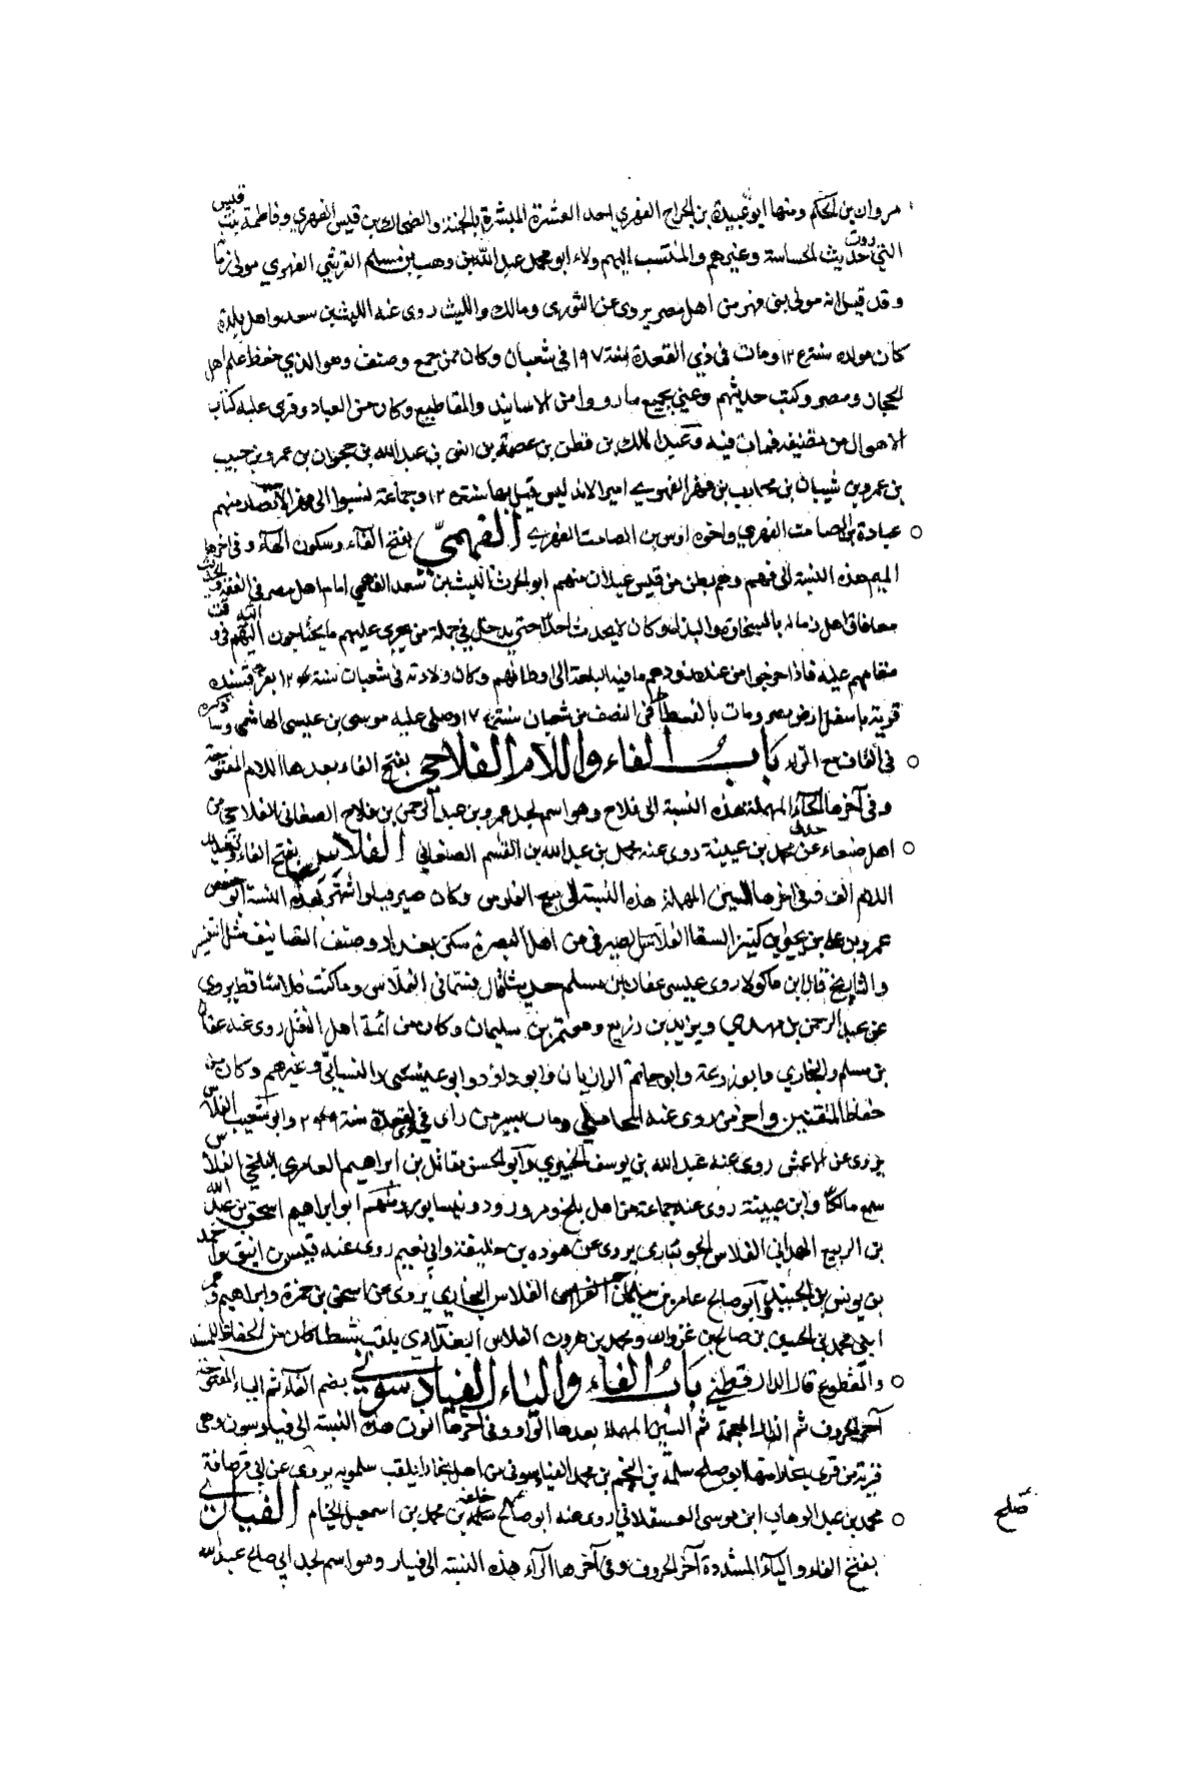 مروان بن الحكم ومنها ابو عبيدة بن الجراح الفهري احد العشرة المبشرة بالجنة والضحاك بن قيس الفهري وفاطمة بنت قيس
التي روت حديث الحساسة وغيرهم والمنتسب اليهم ولاء ابو محمد عبد الله بن وهب بن مسلم القرشي الفهري مولى
وقد قيل انه مولى بني فهر من اهل مصر يروى عن الثورى ومالك والليث روى عنه الليث بن سعد واهل بلده
كان مولده سنة ١٢٤ ومات فى ذي القعدة سنة ١٩٧ فى شعبان وكان ممن جمع وصنف وهو الذي حفظ علم اهل
الحجاز ومصر وكتب حديثهم وعني بجميع ما رووا من الاسانيد والمقاطيع وكان من العباد وقرئ عليه كتاب
الاهوال من تصنيفه فمات فيه وعبد الملك بن قطن بن عصمة بن انيس بن عبد الله بن حجوان بن عمرو بن حبيب
بن عمرو بن شيبان بن محارب بن فهر الفهري امير الاندلس قتل بها سنة ١٢٥ وجماعة نسبوا الى فهر الانصار منهم
عبادة بن الصامت الفهري واخوه اوس بن الصامت الفهري الفهمي بفتح الفاء وسكون الهاء وفى اخرها
الميم هذه النسبة الى فهم وهو بطن من قيس عيلان منهم ابو الحرث الليث بن سعد الفهمي امام اهل مصر فى الفقه والحديث
معا فاق اهل زمانه بالسخاوة والبذل وكان لا يحدث احدا حتى يدخل في جملة من يجرى عليهم ما يحتاجون اليه فى وقت
مقامهم عليه فاذا خرجوا من عنده زودهم ما فيه البلغة الى اوطانهم وكان ولادته فى شعبان سنة بقرقشندة
قرية باسفل ارض مصر ومات بالفسطاط فى النصف من شعبان سنة وصلى عليه موسى بن عيسى الهاشمي وسا ذكره
فى القاف مع الراء باب الفاء واللام الفلاحي بفتح الفاء بعدها اللام المفتوحة
وفى آخرها الحاء المهملة هذه النسبة الى فلاح وهو اسم لجد عمرو بن عبد الرحمن بن فلاح الصنعانى الفلاحي من
اهل صنعاء حدث عن محمد بن عيينة روى عنه محمد بن عبد الله بن القسم الصنعاني الفلاس بفتح الفاء وتشديد
اللام الف وفى اخرها السين المهملة هذه النسبة الى بيع الفلوس وكان صيرفيا واشتهر بهذه النسبة ابو حفص
عمرو بن على بن بحر بن كنيز السقا الفلاس الصيرفى من اهل البصرة سكن بغداد وصنف التصانيف مثل التفسير
والتاريخ قال ابن ماكولا روى عنه عفان بن مسلم حديثا قال فسماني الفلاس وما كنت فلاسا قط يروى
عن عبد الرحمن بن مهدي ويزيد بن زريع ومعتمر بن سليمان وكان من ائمة اهل النقل روى عنه عفان
بن مسلم والبخاري وابو زرعة وابو حاتم الرازيان وابو داؤد وابو عيسى والنسائى وغيرهم وكان من
حفاظ المتقنين واخر من روى عنه المحاملي ومات بسر من راى في ذى القعدة سنة ٢٤٩ وابو شعيب الفلاس
يروى عن الاعمش روى عنه عبد الله بن يوسف وابو الحسن مقاتل بن ابراهيم العامرى البلخي الفلاس
سمع مالكا وابن عيينة روى عنه جماعة من اهل بلخ ومرو رود ونيسابور ومنهم ابو ابراهيم اسحق بن عبد الله
بن الربيع الهمدانى الفلاس الجويبارى يروى عن هوذه بن خليفة وابي نعيم روى عنه قيس بن انيف واحمد
بن يونس بن الجنيد وابو صالح عامر بن سليمان الفلاس البخاري يروى عن اسحق بن حمزة وابراهيم وعمر
ابنى محمد بن الحسين بن صالح بن غزوان ومحمد بن هرون الفلاس البغدادى يلقب شيطا كان من الحفاظ للمسند
والمقطوع قاله الدارقطني باب الفاء والياء الفياذسونى بضم الفاء ثم الياء المفتوحة
آخر الحروف ثم الذال المعجمة ثم السين المهملة بعدها الواو وفى آخرها النون هذه النسبة الى فياذسون وهى
قرية من قرى بخارا منها ابو صالح سلمة بن النجم بن محمد الفياذسونى من اهل بخارا يلقب سلمويه يروى عن ابى قرصافة
محمد بن عبد الوهاب ابن موسى العسقلاني روى عنه ابو صالح خلف بن محمد بن اسمعيل الخيام الفيارى
بفتح الفاء والياء المشددة آخر الحروف وفى آخرها الراء هذه النسبة الى فيار وهو اسم لجد ابي صالح عبد الله
صلح